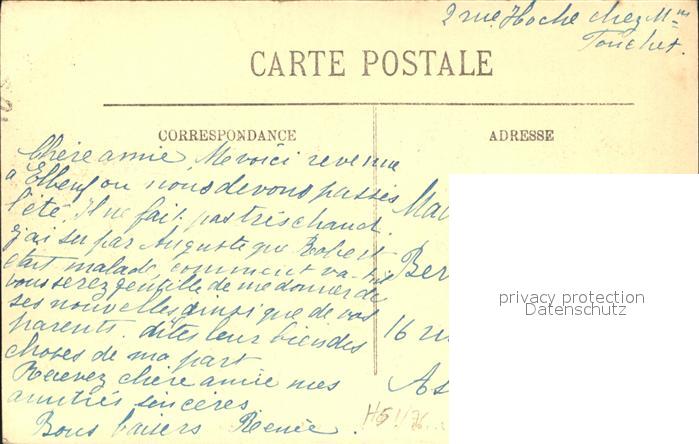 2 rue Hoche chez Mme
Touchet.
CARTE POSTALE
CORRESPONDANCE
ADRESSE
Chère amie, Me voici revenue
à Elbeuf ou nous devons passés
l'été. Il ne fait pas très chaud.
j'ai su par Auguste que Robert
était malade, comment va-t-il
vous serez gentille de me donner de
ses nouvelles ainsi que de vos
parents. dites leur bien des
choses de ma part
Recevez chère amie mes
amitiés sincères
Bons baisers Renée.
Ber
16 ru
As
privacy protection
Datenschutz